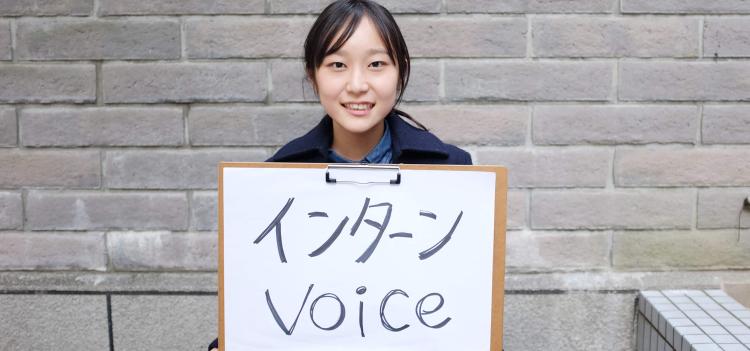 インターン
voice